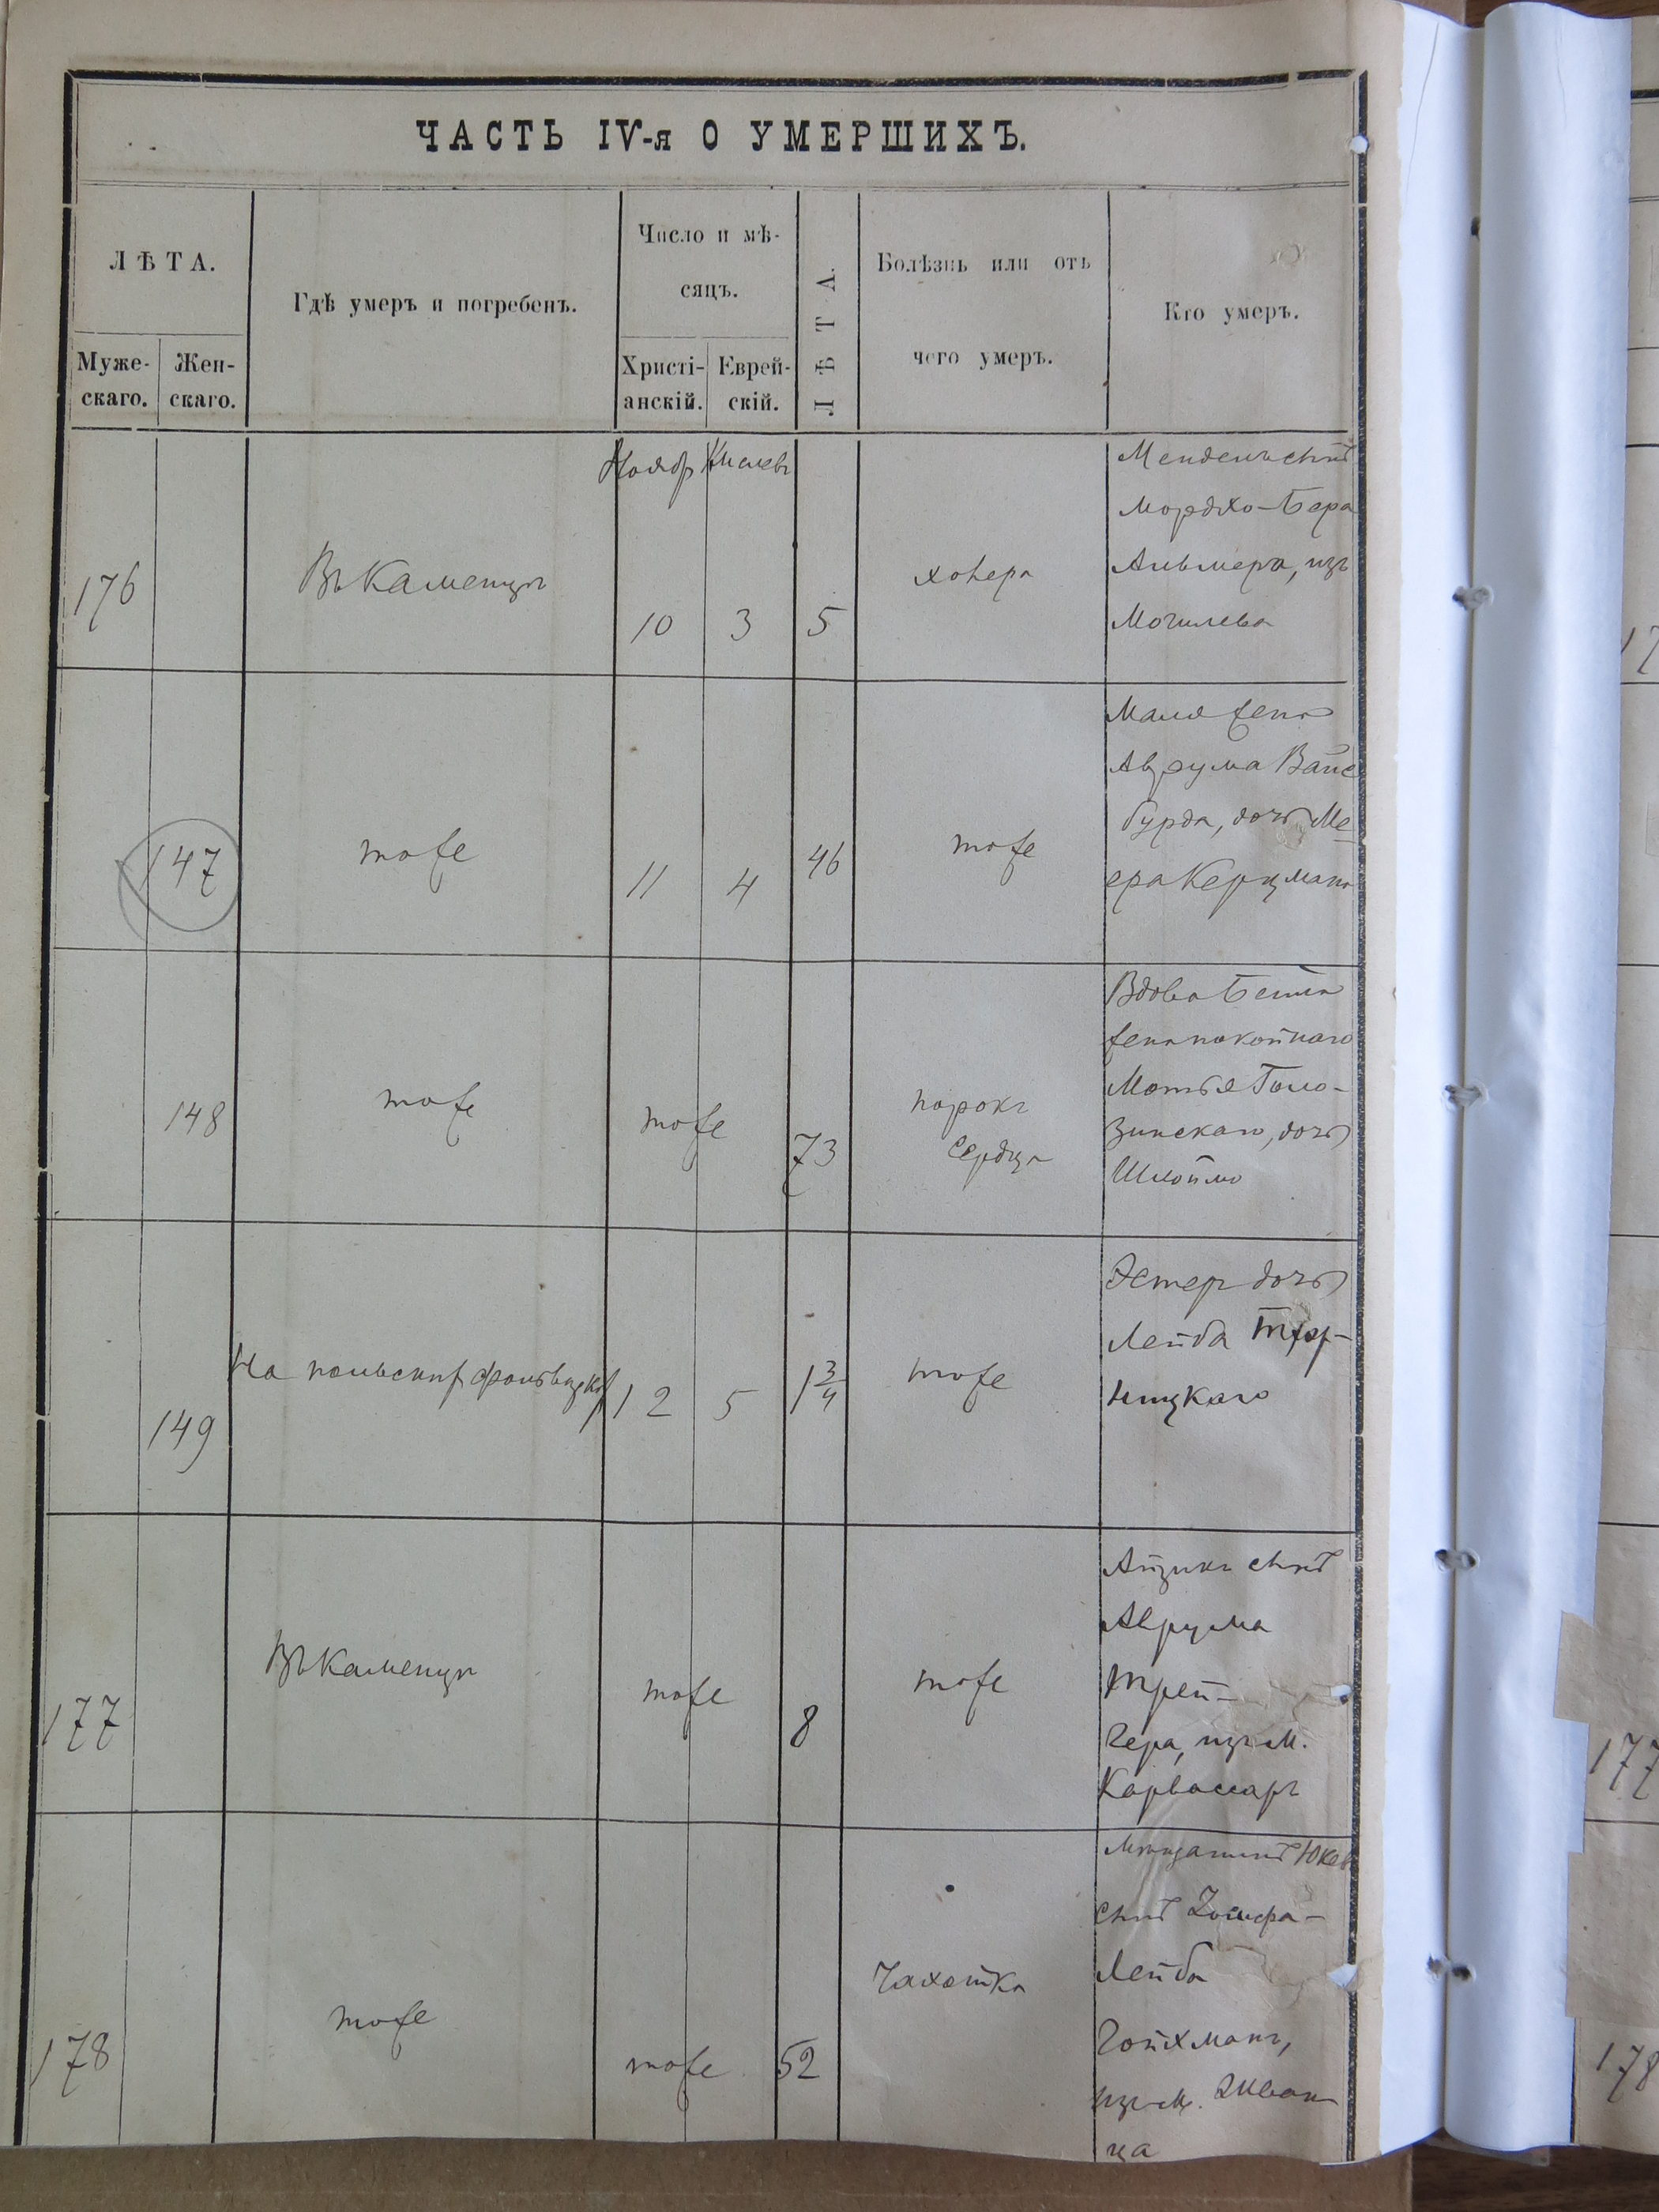 ЧАСТЬ IV-я О УМЕРШИХЪ.
ЛѢТА.
Муже-
скаго.
Жен-
скаго.
Гдѣ умеръ и погребенъ.
Число и мѣ-
сяцъ.
Христі-
анскій.
Еврей-
скій.
ЛѢТА.
Болѣзнь или отъ
чего умеръ.
Кто умеръ.
Ноябр Кислевъ
176
Въ Каменцѣ
10 3 5
холера
Мендель сынъ
Мордхо-Бера
из
Могилева
147
тоже
11 4 46
тоже
Маля жена
Аврума Вайс
бурда, дочь Ме-
ера Керцмана
148
тоже
тоже
73
порокъ
сердца
Вдова Бейла
жена покойнаго
Мотья Голо-
зинскаго, дочь
Шлоймо
149
На польских фольварках
12 5 1 3/4
тоже
Эстер дочь
Лейба
ницкаго
177
Въ Каменцѣ
тоже
8
тоже
Айзикъ сынъ
Аврума
Трей-
гера, изъ м.
Карвасаръ
178
тоже
тоже
52
Чахотка
сынъ
Лейба
Гойхманъ,
изъ м. Жван
ца
17
177
178